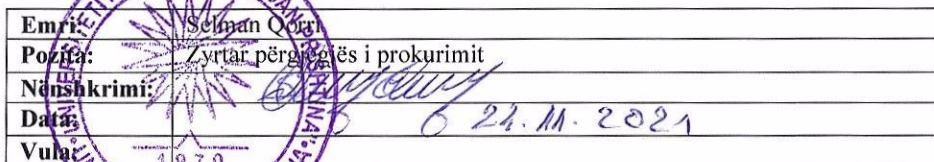 Emri: Selman Qorri
Pozita: Zyrtar përgjegjës i prokurimit
Nënshkrimi:
Data: 22.11.2021
Vula:
1970